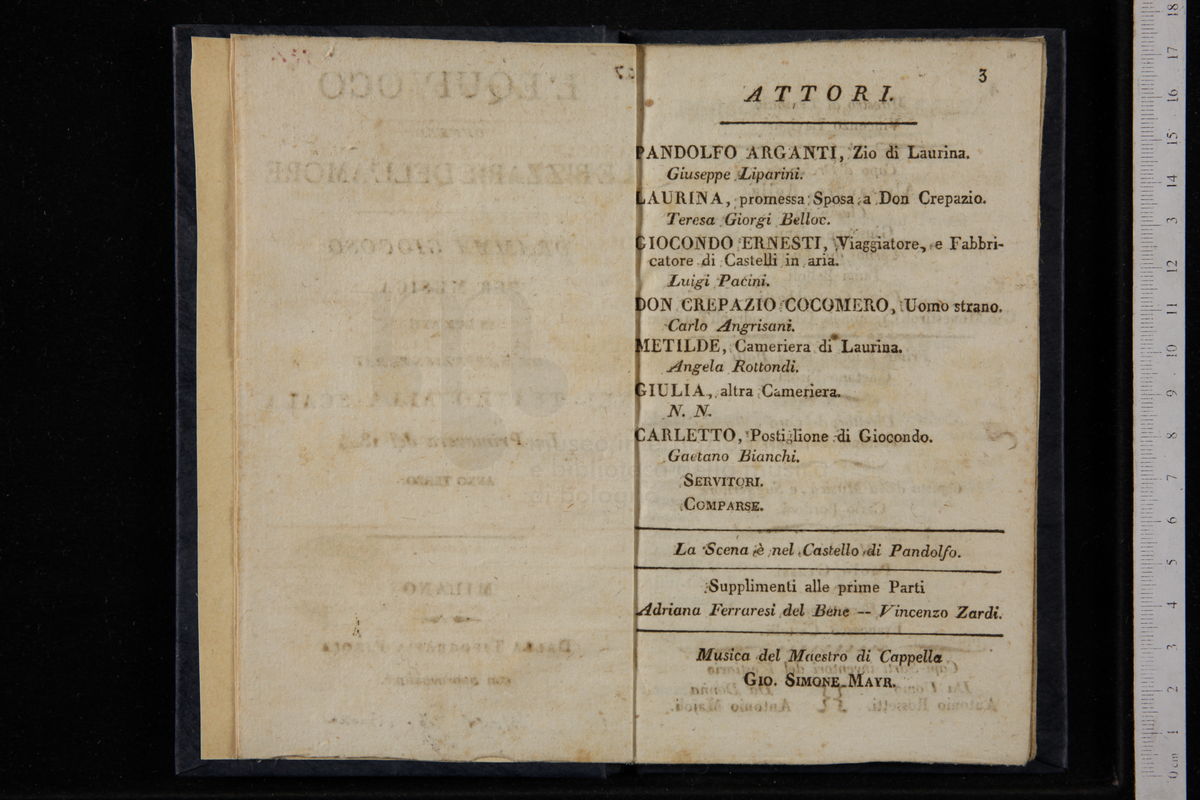 3
ATTORI.
PANDOLFO ARGANTI, Zio di Laurina.
Giuseppe Liparini.
LAURINA, promessa Sposa a Don Crepazio.
Teresa Giorgi Belloc.
GIOCONDO ERNESTI, Viaggiatore, e Fabbri-
catore di Castelli in aria.
Luigi Pacini.
DON CREPAZIO COCOMERO, Uomo strano.
Carlo Angrisani.
METILDE, Cameriera di Laurina.
Angela Rottondi.
GIULIA, altra Cameriera.
N. N.
CARLETTO, Postiglione di Giocondo.
Gaetano Bianchi.
SERVITORI.
COMPARSE.
La Scena è nel Castello di Pandolfo.
Supplimenti alle prime Parti
Adriana Ferraresi del Bene — Vincenzo Zardi.
Musica del Maestro di Cappella
GIO. SIMONE MAYR.